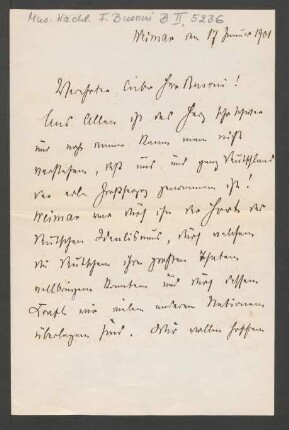 Mus. Nachl. F. Busoni B II, 5236
Weimar am 17 Januar 1901
Verehrter lieber Herr Busoni!
Uns Allen ist das Herz sehr schwer
und noch immer kann man nicht
verstehen, daß uns und ganz Deutschland
der edle Großherzog genommen ist!
Weimar war durch ihn der Hort des
Deutschen Idealismus, durch welchen
die Deutschen ihre größten Thaten
vollbringen konnten und durch dessen
Kraft wir vielen anderen Nationen
überlegen sind. Wir wollen hoffen